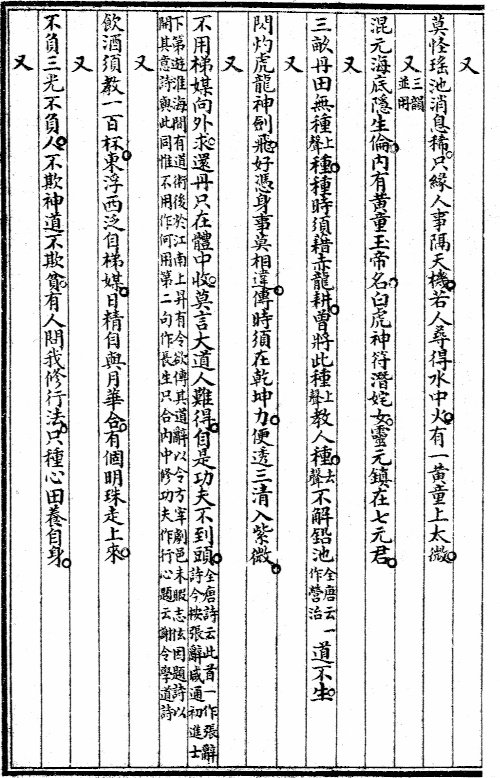 又
莫怪瑤池消息稀只緣人事隔天機若人尋得水中火有一黄童上太微
又三韻並用
混元海底隱生倫内有黄童玉帝名白虎神符潛姹女靈元鎮在七元君
又
三畝丹田無種上聲種種時須藉赤龍耕曽將此種上聲教人種去聲不解鉛池全唐云一作營治道不生
又
閃灼虎龍神劍飛好憑身事莫相違傳時須在乾坤力便透三清入紫微
又
不用梯媒向外求還丹只在體中收莫言大道人難得自是功夫不到頭全唐詩云此首一作張辭詩今按張辭咸通初進士
下第遊淮海間有道術後於江南上昇有令欲傳其道辭以令方宰劇邑未暇志怯因題詩以
開其意詩與此同惟不用作何用第二句作長生只合内中修功夫作行心題云謝令學道詩
又
飲酒須教一百杯東浮西泛自梯媒日精自與月華合有個明珠走上來
又
不負三光不負人不欺神道不欺貧有人問我修行法只種心田養自身
又